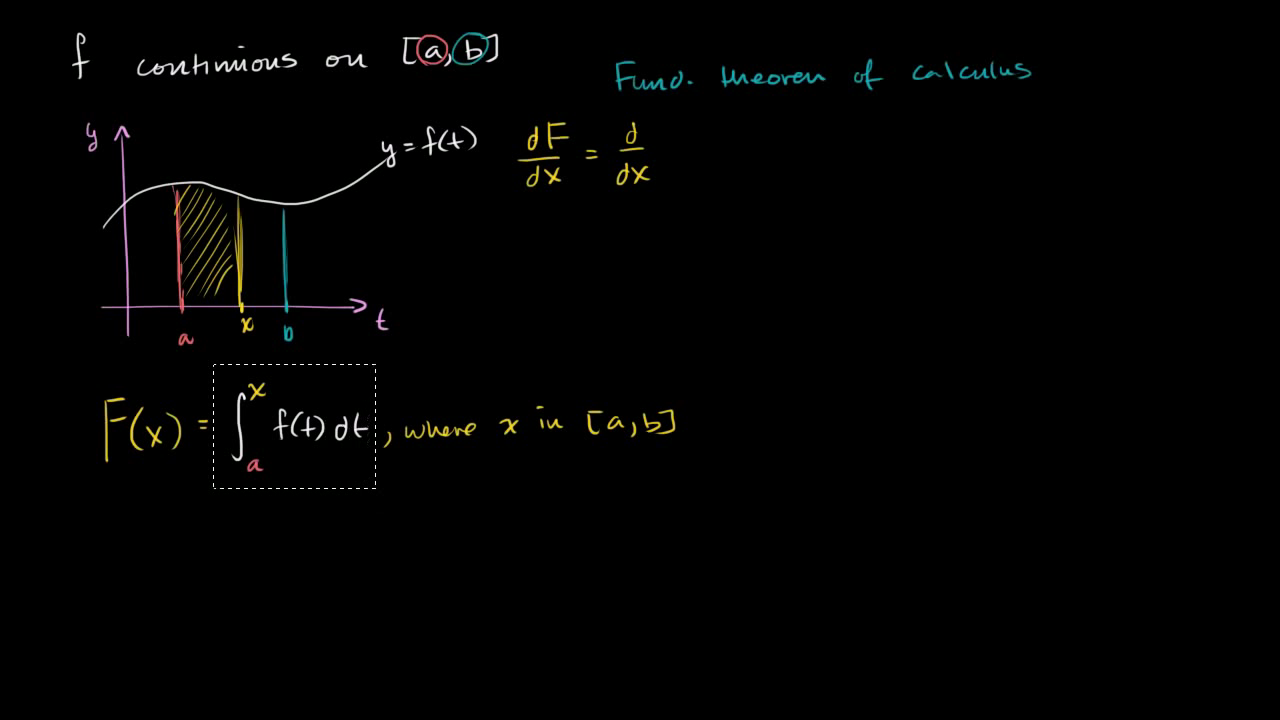 f continuous on [a, b]
Fund. theorem of calculus
y
y = f(t)
dF/dx = d/dx
t
a
x
b
F(x) = ∫_a^x f(t) dt, where x in [a, b]